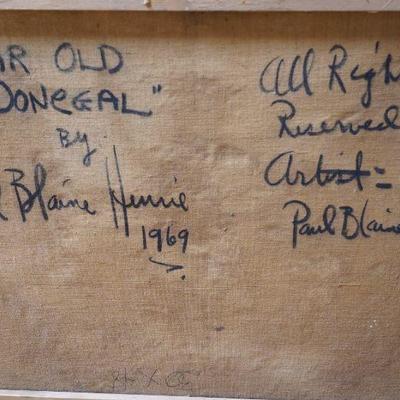 AR OLD
DONEGAL"
By
l Blaine Henrie
1969
All Righ
Reserved
Artist:
Paul Blaine